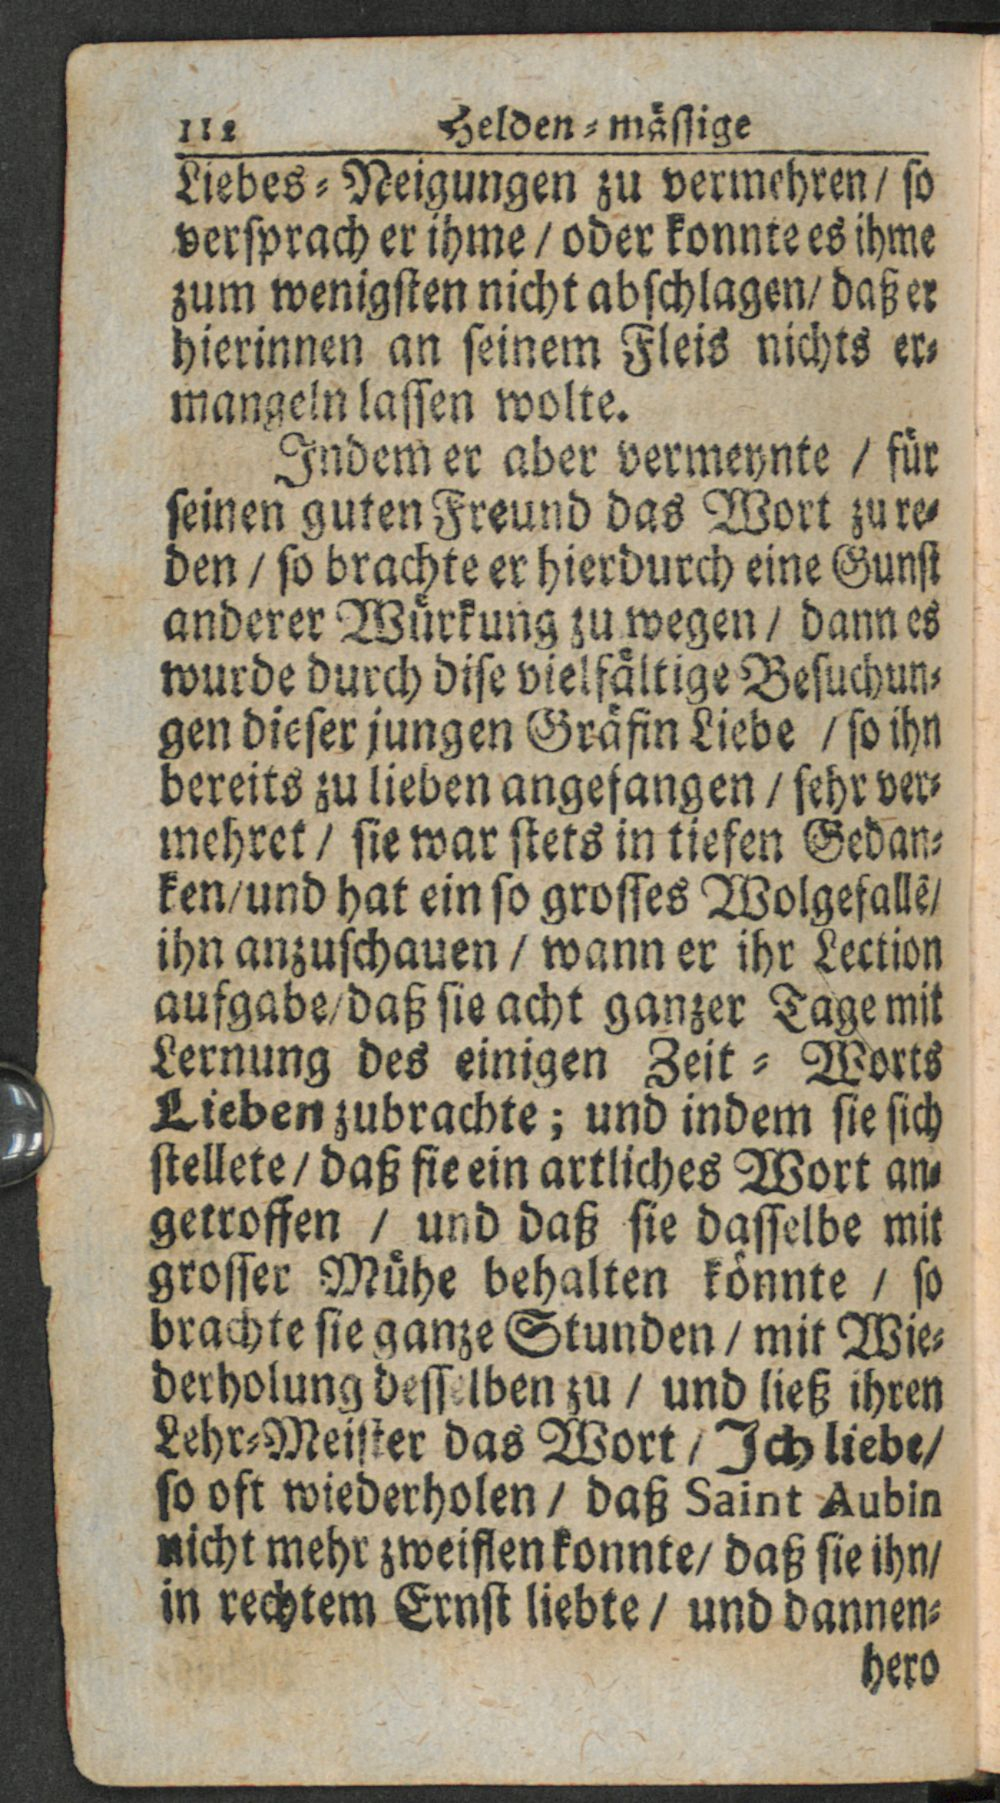 112 Helden-mässige
Liebes-Neigungen zu vermehren / so
versprach er ihme / oder konnte es ihme
zum wenigsten nicht abschlagen / daß er
hierinnen an seinem Fleis nichts er-
mangeln lassen wolte.
Indem er aber vermeynte / für
seinen guten Freund das Wort zu re-
den / so brachte er hierdurch eine Gunst
anderer Würkung zu wegen / dann es
wurde durch dise vielfältige Besuchun-
gen dieser jungen Gräfin Liebe / so ihn
bereits zu lieben angefangen / sehr ver-
mehret / sie war stets in tiefen Gedan-
ken / und hat ein so grosses Wolgefallẽ /
ihn anzuschauen / wann er ihr Lection
aufgabe / daß sie acht ganzer Tage mit
Lernung des einigen Zeit-Worts
Lieben zubrachte; und indem sie sich
stellete / daß sie ein artliches Wort an-
getroffen / und daß sie dasselbe mit
grosser Mühe behalten könnte / so
brachte sie ganze Stunden / mit Wie-
derholung desselben zu / und ließ ihren
Lehr-Meister das Wort / Ich liebe /
so oft wiederholen / daß Saint Aubin
nicht mehr zweiflen konnte / daß sie ihn /
in rechtem Ernst liebte / und dannen-
hero